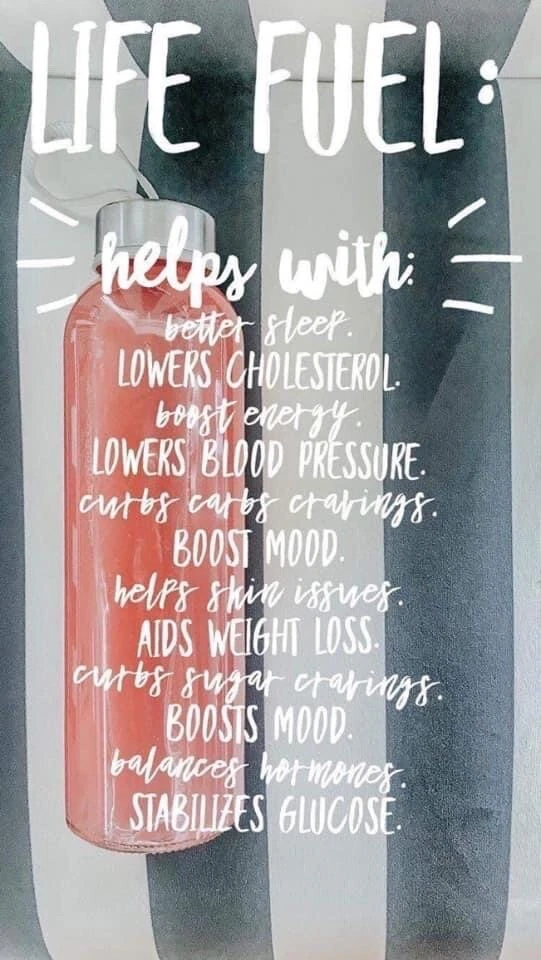 LIFE FUEL:
helps with:
better sleep.
LOWERS CHOLESTEROL.
boost energy.
LOWERS BLOOD PRESSURE.
curbs carbs cravings.
BOOST MOOD.
helps skin issues.
AIDS WEIGHT LOSS.
curbs sugar cravings.
BOOSTS MOOD.
balances hormones.
STABILIZES GLUCOSE.